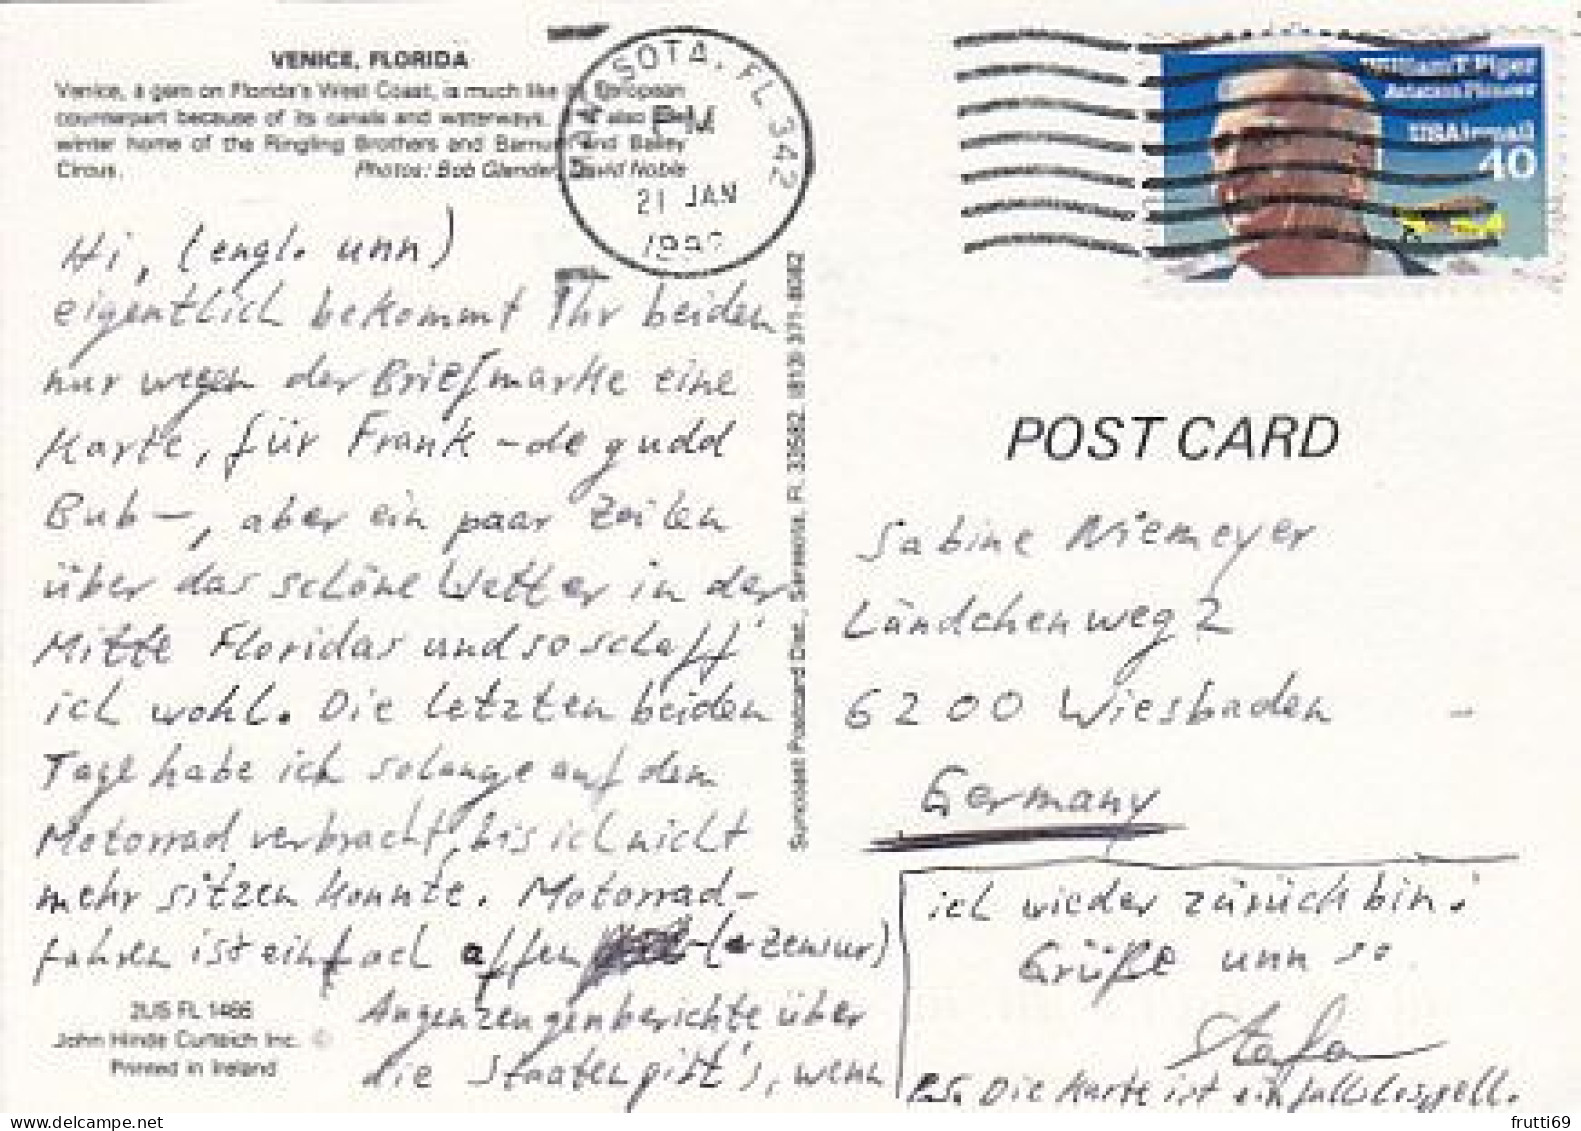 VENICE, FLORIDA
Venice, a gem on Florida's West Coast, is much like its European
counterpart because of its canals and waterways. It is also the
winter home of the Ringling Brothers and Barnum and Bailey
Circus. Photos: Bob Glander, David Noble
SARASOTA, FL 342
PM
21 JAN
William T. Piper
Aviation Pioneer
USAirmail
40
Hi, (engl. unn)
eigentlich bekommt Ihr beiden
nur wegen der Briefmarke eine
Karte, für Frank -de gudd
Bub-, aber ein paar Zeilen
über das schöne Wetter in der
Mitte Floridas und so schaff'
ich wohl. Die letzten beiden
Tage habe ich solange auf dem
Motorrad verbracht, bis ich nicht
mehr sitzen konnte. Motorrad-
fahren ist einfach affen (Zensur)
Augenzeugenberichte über
die Staaten gibt's, wenn
ich wieder zurück bin!
Grüße unn so
Stefan
P.S. Die Karte ist einfallslos, gell.
2US FL 1466
John Hinde Curteich Inc. ©
Printed in Ireland
Suncoast Postcard Dist., Sarasota, Fl. 33582 (813) 371-8082
POST CARD
Sabine Niemeyer
Ländchenweg 2
6200 Wiesbaden
Germany
frutti69